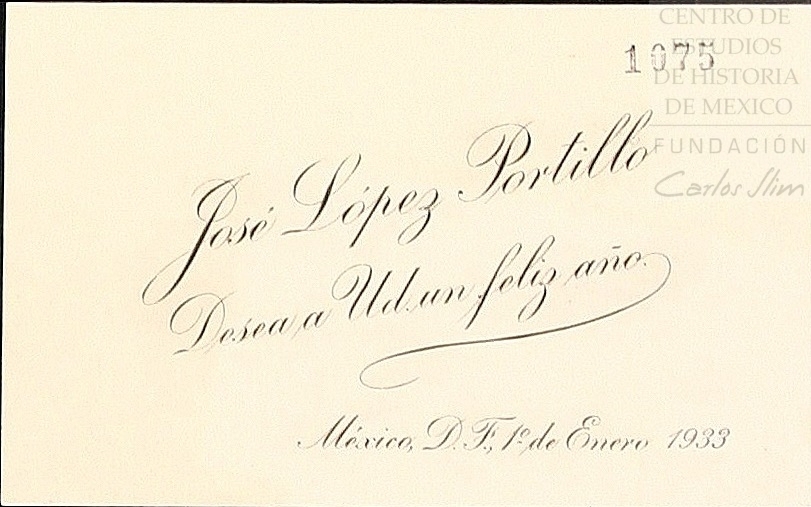 CENTRO DE
ESTUDIOS
DE HISTORIA
DE MEXICO
FUNDACIÓN
Carlos Slim
1075
José López Portillo
Desea a Ud. un feliz año.
México, D. F., 1º de Enero 1933